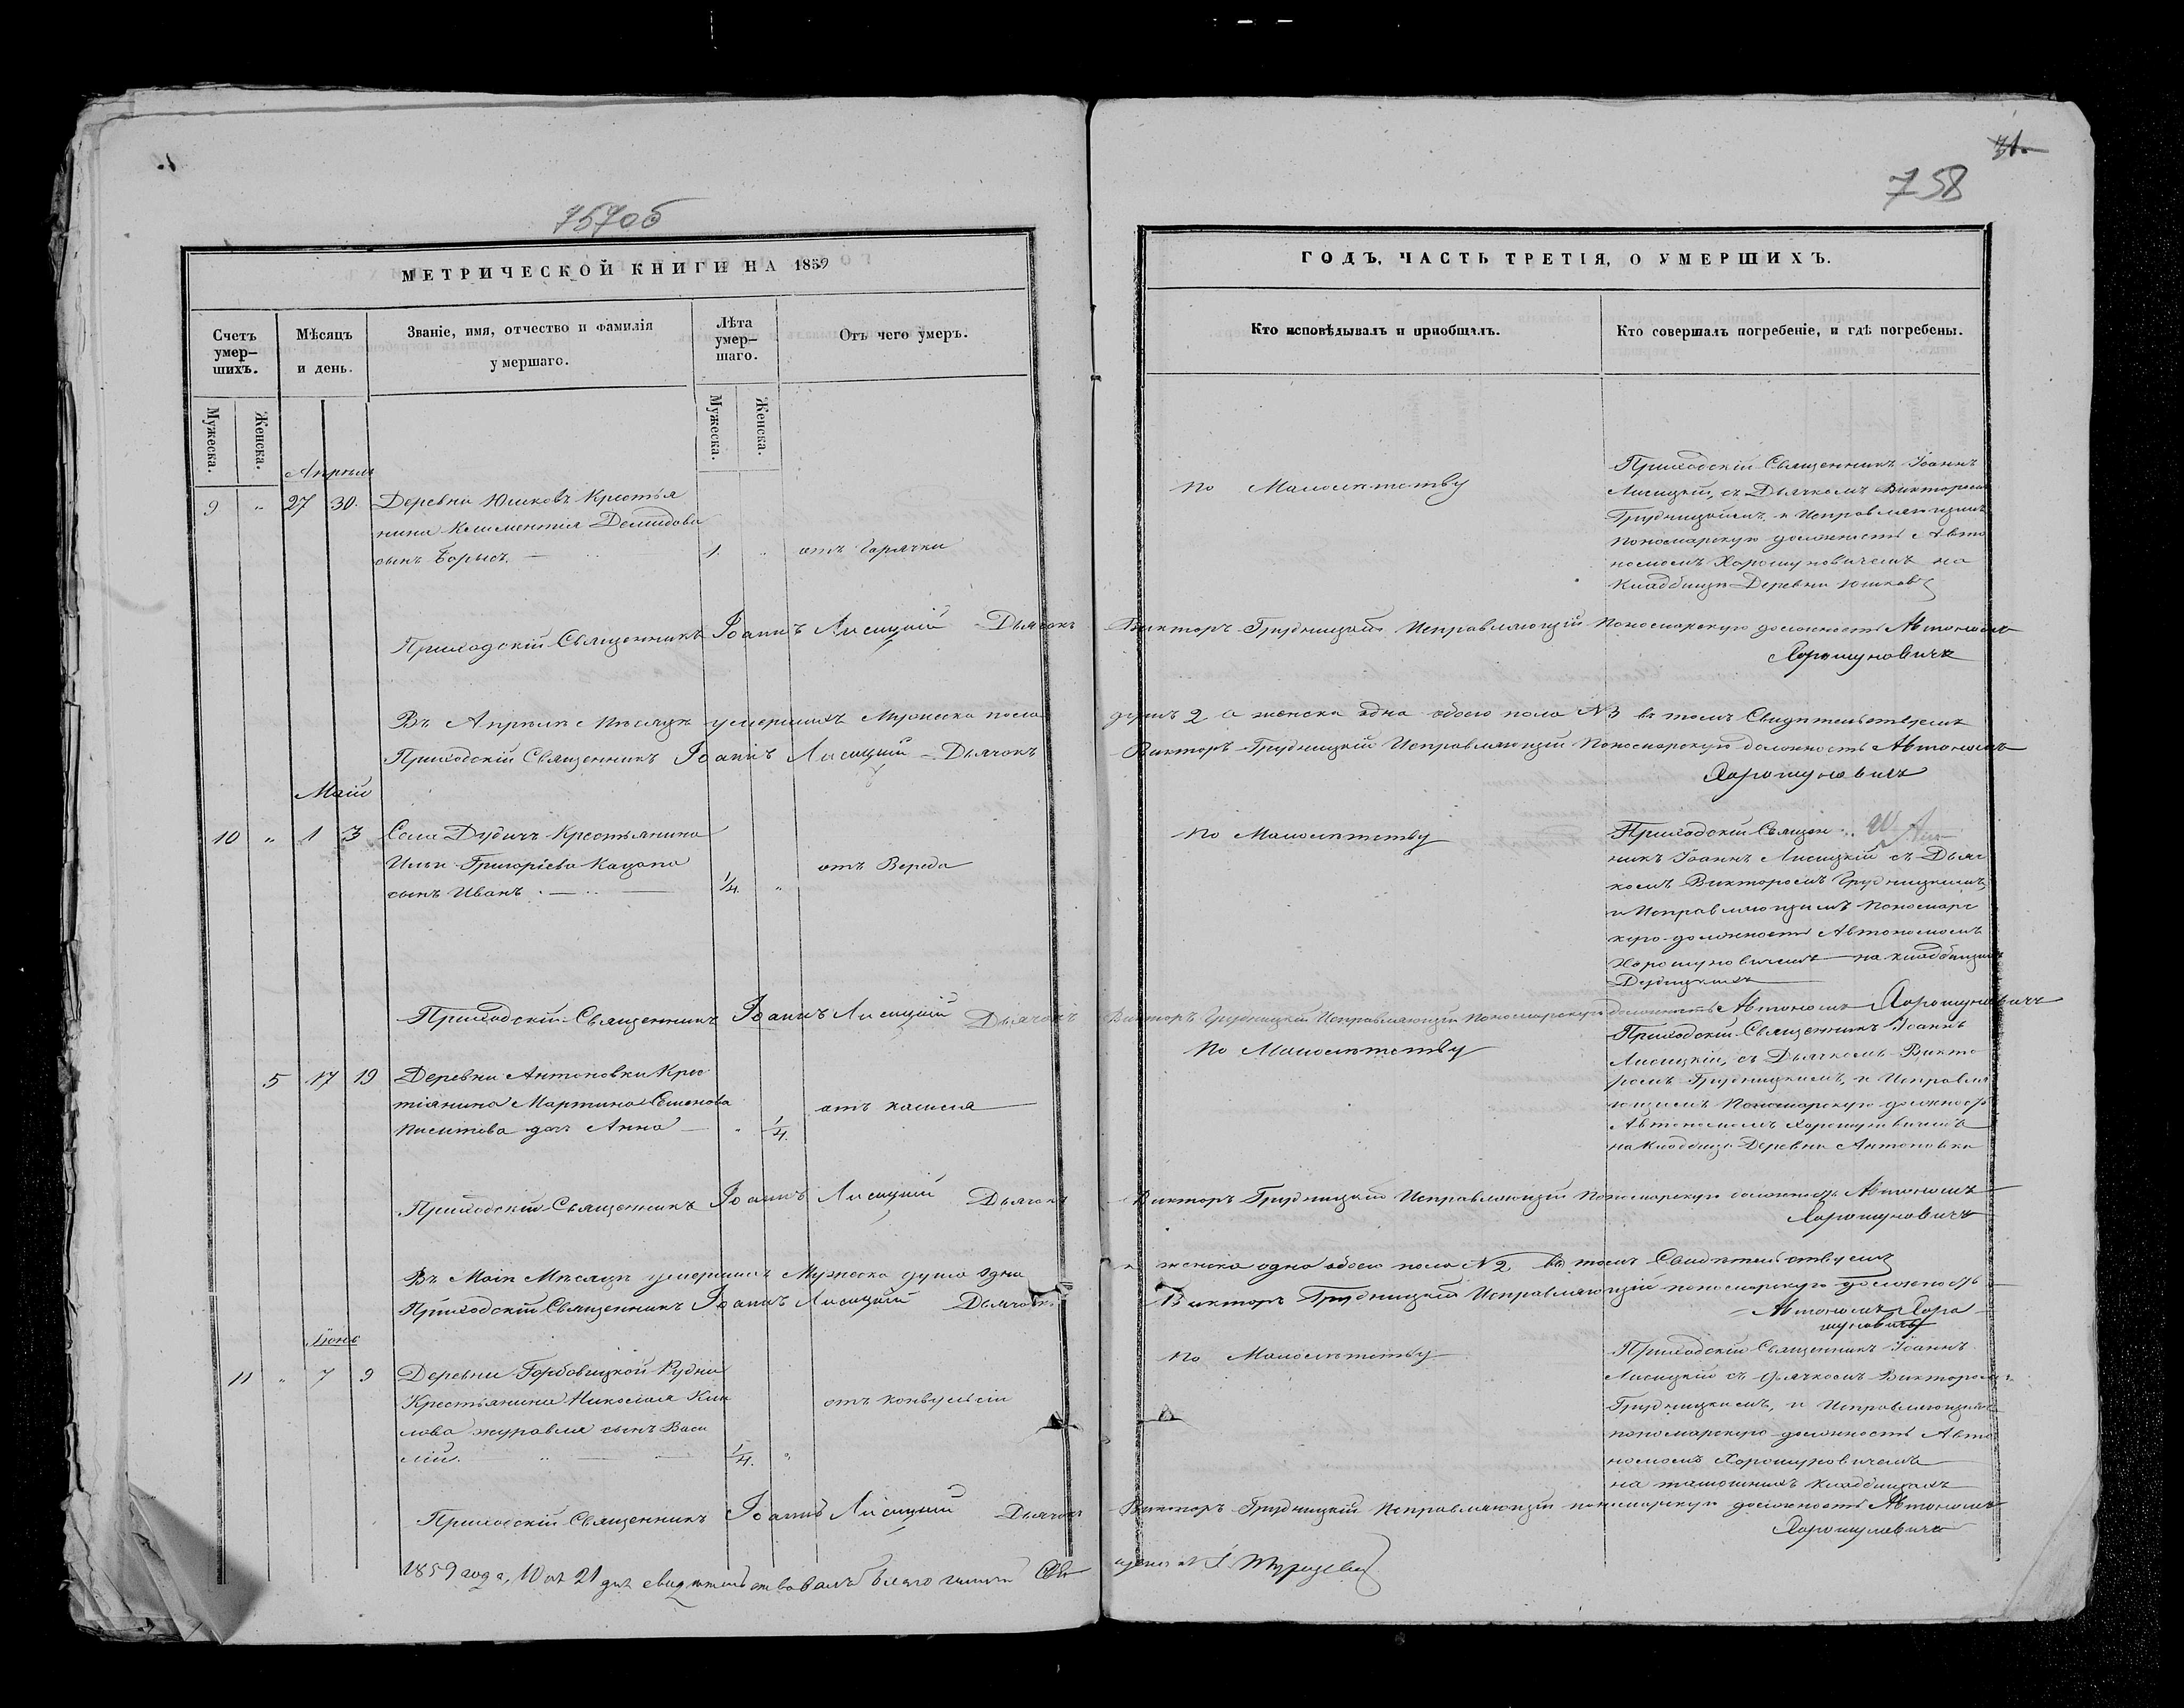 757об
МЕТРИЧЕСКОЙ КНИГИ НА 1859
Счетъ умер-шихъ.
Мѣсяцъ и день.
Званіе, имя, отчество и фамилія умершаго.
Лѣта умер-шаго.
Отъ чего умеръ.
Мужеска.
Женска.
Мужеска.
Женска.
Апрѣль
9 " 27 30. Деревни Юшковъ Крестья
нина Климентія Демидова
сынъ Борысъ. 1. " отъ Горячки
Приходскій Священникъ Іоаннъ Лисицкій Дьячокъ
Въ Апрѣлѣ Мѣсяцѣ умершихъ Мужеска пола
Приходскій Священникъ Іоаннъ Лисицкій Дьячокъ
Маій
10 " 1 3 Села Дудичъ Крестьянина
Ильи Григоріева Кацапа отъ Вереда
сынъ Иванъ 1/4. "
Приходскій Священникъ Іоаннъ Лисицкій Дьячокъ
5 17 19 Деревни Антоновки Крес
тіянина Мартина Семенова отъ кашля
дочь Анна " 1/4.
Приходскій Священникъ Іоаннъ Лисицкій Дьячокъ
Въ Маіи Мѣсяцѣ умершихъ Мужеска душа одна
Приходскій Священникъ Іоаннъ Лисицкій Дьячокъ
Іюнь
11 " 7 9 Деревни Горбовицкой Рудни
Крестьянина Николая отъ конвульсіи
журавля сынъ Васи
лій. 1/4. "
Приходскій Священникъ Іоаннъ Лисицкій Дьячокъ
1859 года, 10 21 дня свидѣтельствовалъ
31.
758
ГОДЪ, ЧАСТЬ ТРЕТІЯ, О УМЕРШИХЪ.
Кто исповѣдывалъ и приобщалъ.
Кто совершалъ погребеніе, и гдѣ погребены.
По Малолѣтству
Приходскій Священникъ Іоаннъ
Лисицкій, съ Дьячкомъ Викторомъ
Грудницкимъ и Исправляющимъ
пономарскую должность Авто
номомъ Хорошуновичемъ на
Кладбищѣ Деревни Юшковъ
Викторъ Грудницкій Исправляющій Пономарскую должность Автономъ
Хорошуновичъ
душъ 2 а женска одна обоего пола №3 въ томъ Свидѣтельствуемъ
Викторъ Грудницкій Исправляющій Пономарскую должность Автономъ
Хорошуновичъ
По Малолѣтству
Приходскій Священ
никъ Іоаннъ Лисицкій съ Дьяч
комъ Викторомъ Грудницкимъ,
и Исправляющимъ Пономарс
кую должность Автономомъ
Хорошуновичемъ на кладбищахъ
Дудицкихъ
Викторъ Грудницкій Исправляющій Пономарскую должность Автономъ Хорошуновичъ
По Малолѣтству
Приходскій Священникъ Іоаннъ
Лисицкій, съ Дьячкомъ Викто
ромъ Грудницкимъ, и Исправля
ющимъ Пономарскую должность
Автономомъ Хорошуновичемъ
на Кладбищѣ Деревни Антоновки
Викторъ Грудницкій Исправляющій Пономарскую должность Автономъ
Хорошуновичъ
а женска одна обоего пола №2 въ томъ Свидѣтельствуемъ
Викторъ Грудницкій Исправляющій пономарскую должность
Автономъ Хоро
шуновичъ
По Малолѣтству
Приходскій Священникъ Іоаннъ
Лисицкій съ дьячкомъ Викторомъ
Грудницкимъ, и Исправляющимъ
пономарскую должность Авто
номомъ Хорошуновичемъ
на тамошнихъ кладбищахъ
Викторъ Грудницкій Исправляющій пономарскую должность Автономъ
Хорошуновичъ